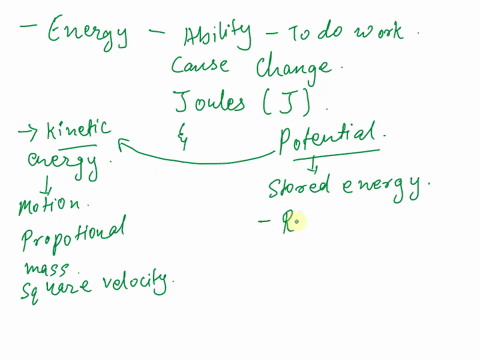 - Energy - Ability - To do work.
Cause Change.
Joules (J).
→ Kinetic energy.
↓
Motion.
Propotional
mass.
Square velocity.
Potential.
↓
Stored energy.
- R